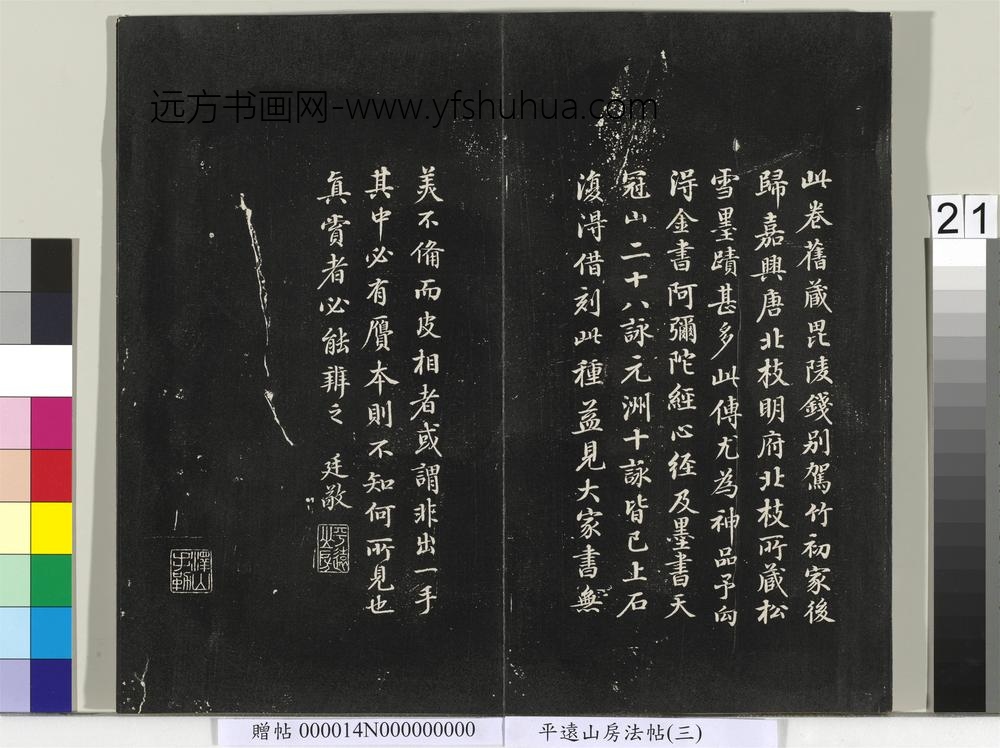 远方书画网-www.yfshuhua.com
21
此卷舊藏毘陵錢別駕竹初家後
歸嘉興唐北枝明府北枝所藏松
雪墨蹟甚多此傳尤為神品予向
淂金書阿彌陀經心經及墨書天
冠山二十八詠元洲十詠皆已上石
復淂借刻此種益見大家書無
美不備而皮相者或謂非出一手
其中必有贗本則不知何所見也
真賞者必能辨之 廷敬
平遠山房
澤山手勒
贈帖 000014N000000000
平遠山房法帖(三)